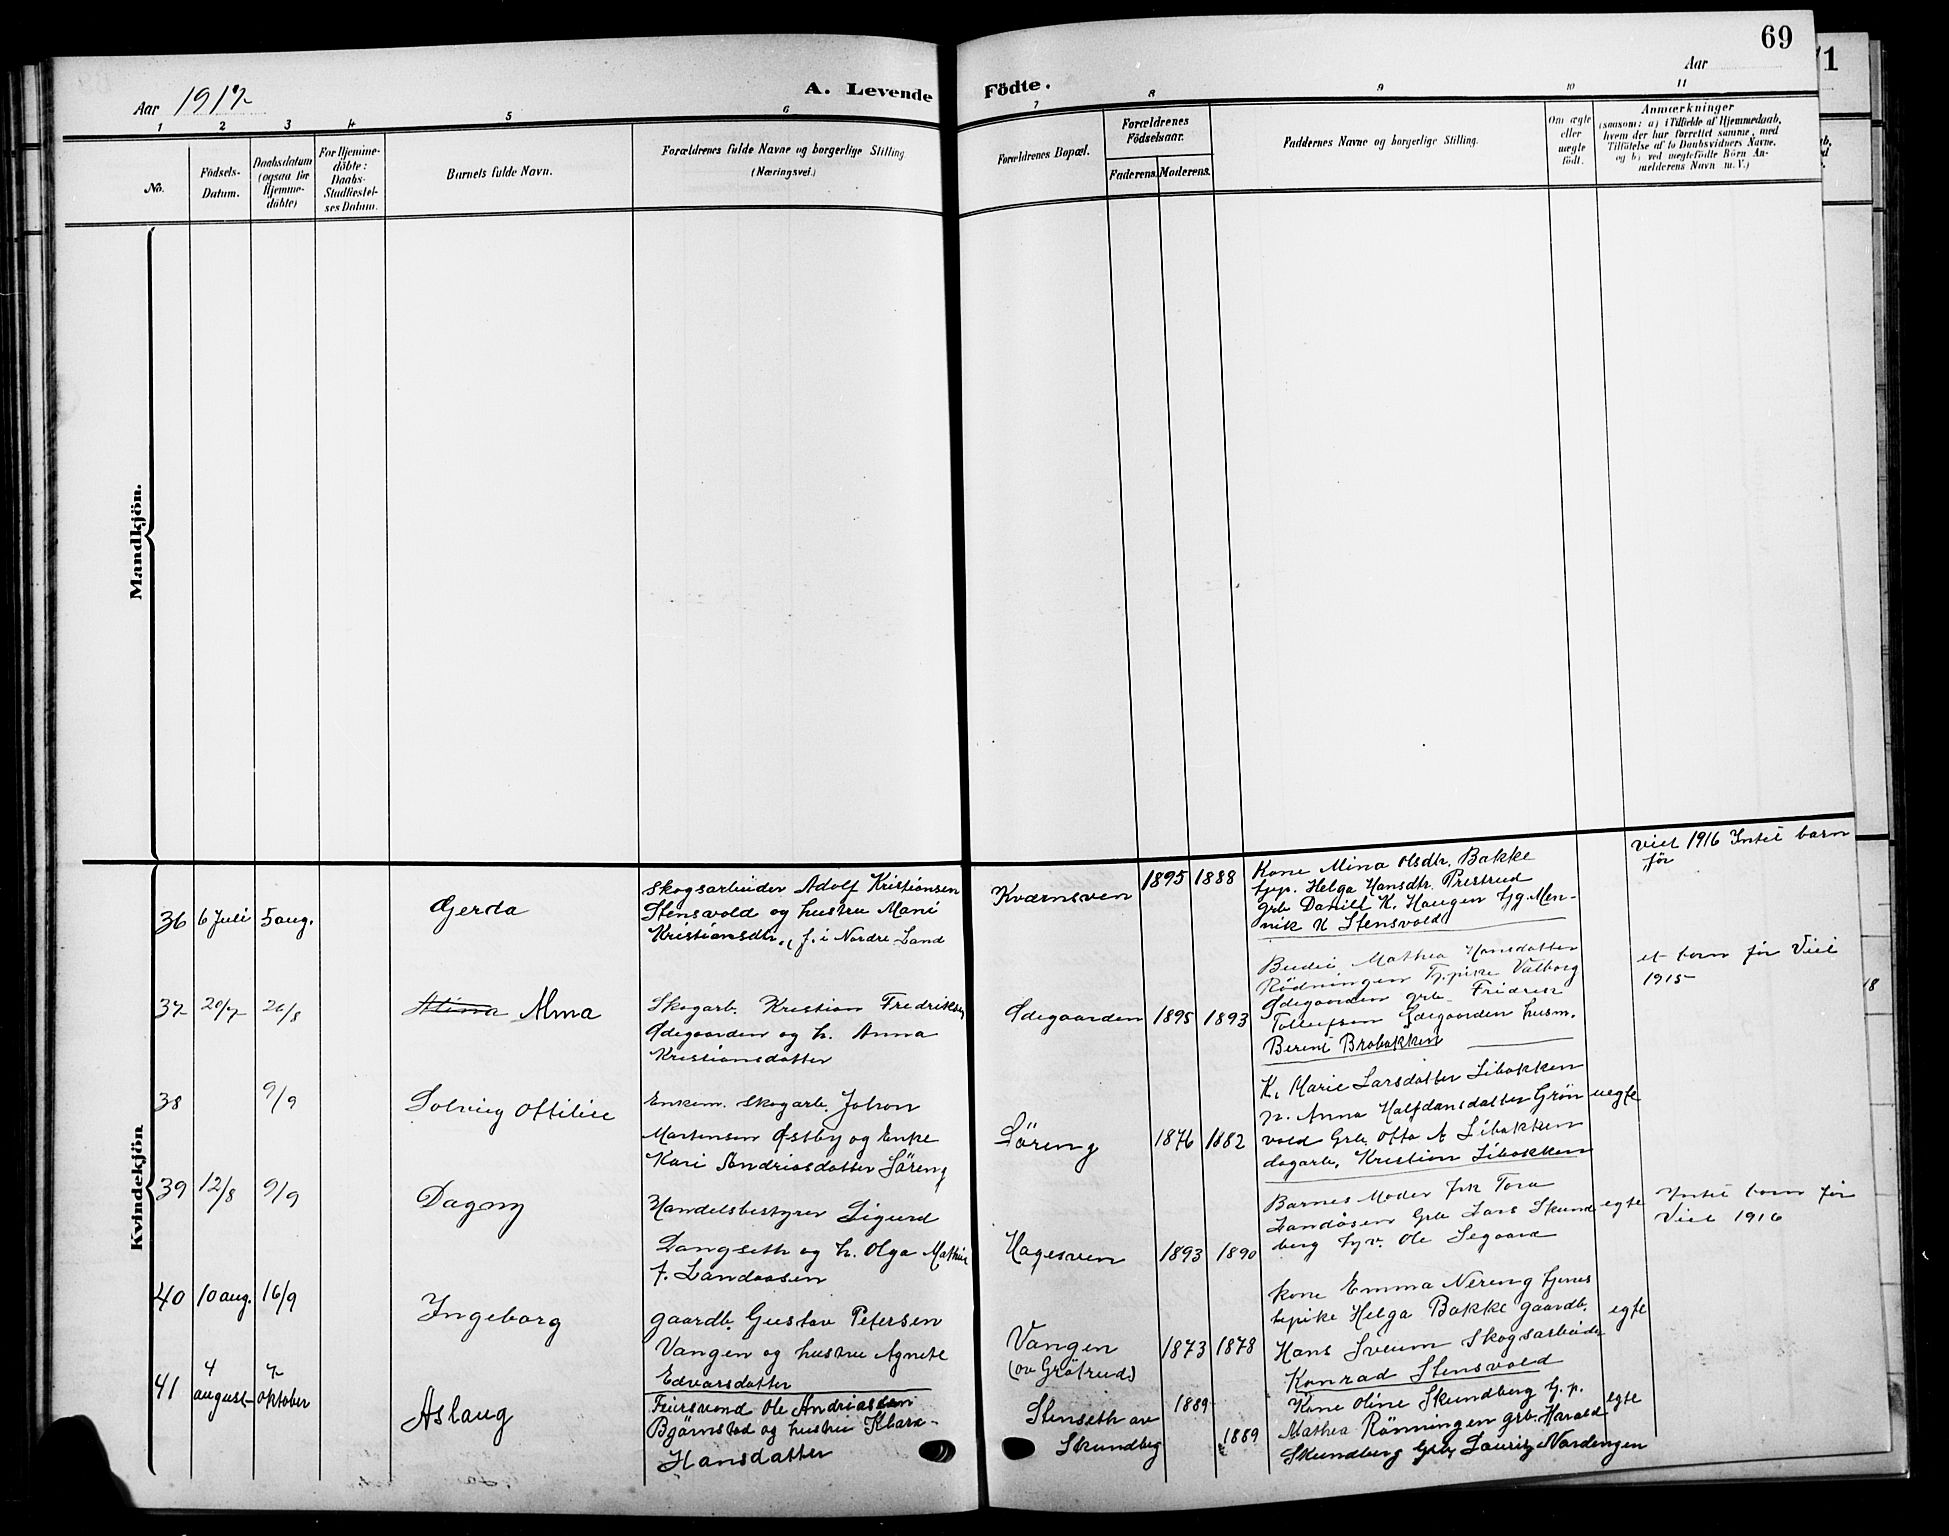 69
71
Aar 1917
A. Levende Födte.
Aar
1 2 3 4 5 6 7 8 9 10 11
No.
Födsels-
Datum.
Daabsdatum
(ogsaa for
Hjemme-
döbte)
For Hjemme-
döbte:
Daabs-
Stadfæstel-
ses Datum.
Barnets fulde Navn.
Forældrenes fulde Navne og borgerlige Stilling
(Næringsvei.)
Forældrenes Bopæl.
Forældrenes
Födselsaar.
Faderens. Moderens.
Faddernes Navne og borgerlige Stilling.
Om ægte
eller
uægte
födt.
Anmærkninger
(saasom: a) i Tilfælde af Hjemmedaab,
hvem der har forrettet samme, med
Tilföielse af to Daabsvidners Navne,
og b) ved uægtefödte Börn An-
melderens Navn m. V.)
Mandkjön.
Kvindekjön
36 6 Juli 5 aug.
Gerda
Skogsarbeider Adolf Kristiansen
Stensvold og hustru Mani
Kristiansdtr., f. i Nordre Land
Kværnsven
1895 1888
Kone Mina Olsdtr. Bakke
tjp. Helga Hansdtr. Prestrud
grb Daniel K. Haugen tjg. Men-
nik K Stensvold
viet 1916 Intet barn
før
37 20/7 26/8
Alma
Skogarb. Kristian Fredriksen
Ødegaarden og h. Anna
Kristiansdatter
Ødegaarden
1895 1893
Budei Mathea Hansdatter
Rødningen Tj.pike Valborg
Ødegaarden grb. Fridrik
Tollefsen Ødegaarden husm.
Berent Brobakken
et barn før Viet
1915
38 9/9
Solveig Ottilie
Enkem. skogarb. Johan
Martensen Østby og Enke
Kari Andriasdatter Søreng
Søreng
1876 1882
K. Marie Larsdatter Libakken
n. Anna Halfdansdatter Grøn
vold Grb. Otto A Libakken
dagarb. Kristian Libakken
uegte
39 12/8 9/9
Dagny
Handelsbestyrer Sigurd
Langseth og h. Olga Mathie
f. Landaasen
Hagesven
1893 1890
Barnes Moder frk Tora
Landåsen Grb Lars Skund
berg Ole Segaard
egte
Intet barn før
Viet 1916
40 10 aug. 16/9
Ingeborg
gaardb. Gustav Petersen
Vangen og hustru Agnete
Edvarsdatter
Vangen
(av Grötrud)
1873 1878
kone Emma Nereng tjenes
tepike Helga Bakke gaardb.
Hans Sveum Skogsarbeider
Konrad Stensvold
egte
41 4
august 7
oktober
Aslaug
Feiersvend Ole Andriassen
Bjørnstad og hustru Klara
Hansdatter
Stenseth av
Skundberg
1889
1889
Kone Oline Skundberg tj. p.
Mathea Rønningen grb. Harald
Skundberg Grb Lauritz Nordengen
egte
18